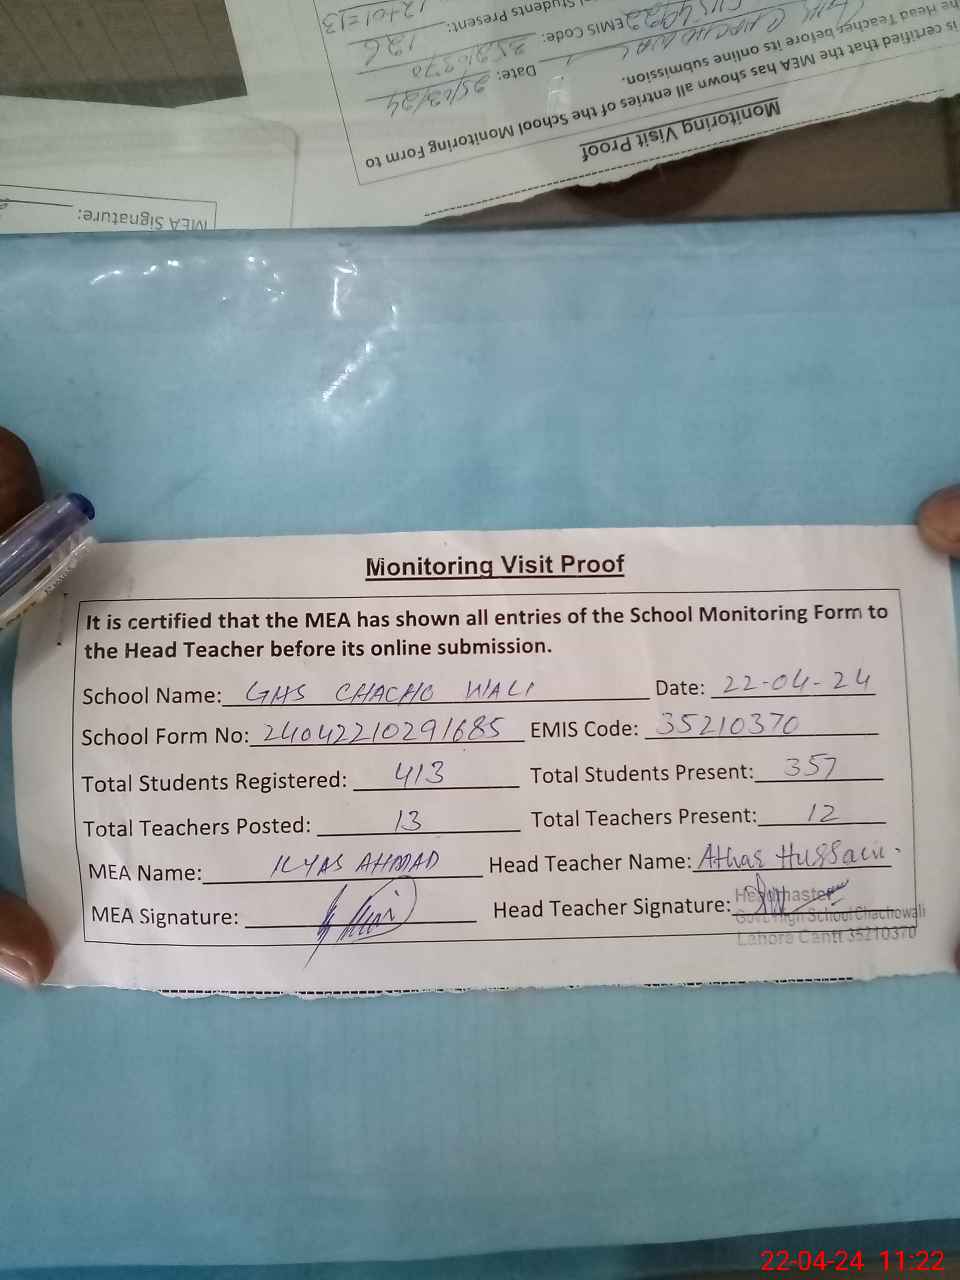 12+01=13
Students Present:
126
EMIS Code:
35210370
Date: 25/03/24
the Head Teacher before its online submission.
is certified that the MEA has shown all entries of the School Monitoring Form to
Monitoring Visit Proof
MEA Signature:
Monitoring Visit Proof
It is certified that the MEA has shown all entries of the School Monitoring Form to
the Head Teacher before its online submission.
School Name: GHS CHACHO WALI Date: 22-04-24
School Form No: 24042210291685 EMIS Code: 35210370
Total Students Registered: 413 Total Students Present: 357
Total Teachers Posted: 13 Total Teachers Present: 12
MEA Name: ILYAS AHMAD Head Teacher Name: Athar Hussain.
MEA Signature: Head Teacher Signature:
Headmaster
Govt. High School Chachowali
Lahore Cantt 35210370
22-04-24 11:22